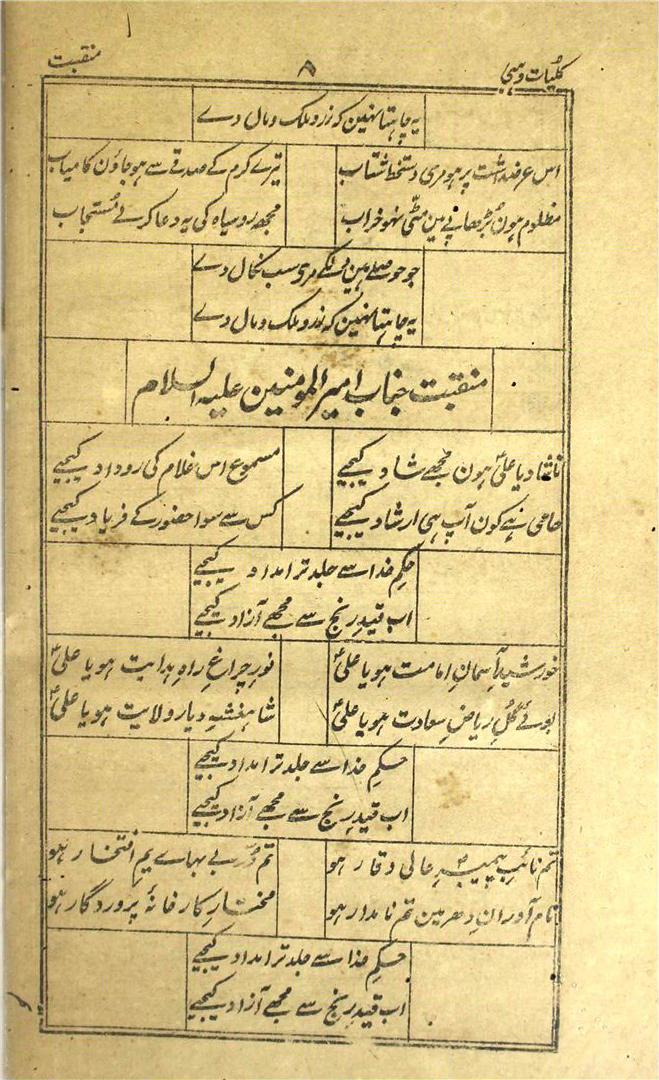 کلیات وہبی ۸ منقبت
یہ چاہتا نہین کہ زر و ملک و مال دے
اس عرضداشت پر ہو مری دستخط شتاب تیرے کرم کے صدقے سے ہو جاؤن کامیاب
مظلوم ہون بڑھاپے مین مٹی نہو خراب مجھ رو سیاہ کی یہ دعا کر لے مستجاب
جو حوصلے ہین دلکے مری سب نکال دے
یہ چاہتا نہین کہ زر و ملک و مال دے
منقبت جناب امیر المومنین علیہ السلام
ناشاد یا علیؑ ہون مجھے شاد کیجیے مسموع اس غلام کی روداد کیجیے
حامی ہے کون آپ ہی ارشاد کیجیے کس سے سوا حضور کے فریاد کیجیے
حکمِ خدا سے جلد تر امداد کیجیے
اب قیدِ رنج سے مجھے آزاد کیجیے
خورشیدِ آسمانِ امامت ہو یا علیؑ نورِ چراغِ راہِ ہدایت ہو یا علیؑ
بوئے گلِ ریاضِ سعادت ہو یا علیؑ شاہنشہِ دیارِ ولایت ہو یا علیؑ
حکمِ خدا سے جلد تر امداد کیجیے
اب قیدِ رنج سے مجھے آزاد کیجیے
تم نائبِ پیمبرِؐ عالی وقار ہو تم دُرِّ بے بہاے یمِ افتخار ہو
نام آورانِ دھر مین تم نامدار ہو مختارِ کارخانۂ پروردگار ہو
حکمِ خدا سے جلد تر امداد کیجیے
اب قیدِ رنج سے مجھے آزاد کیجیے